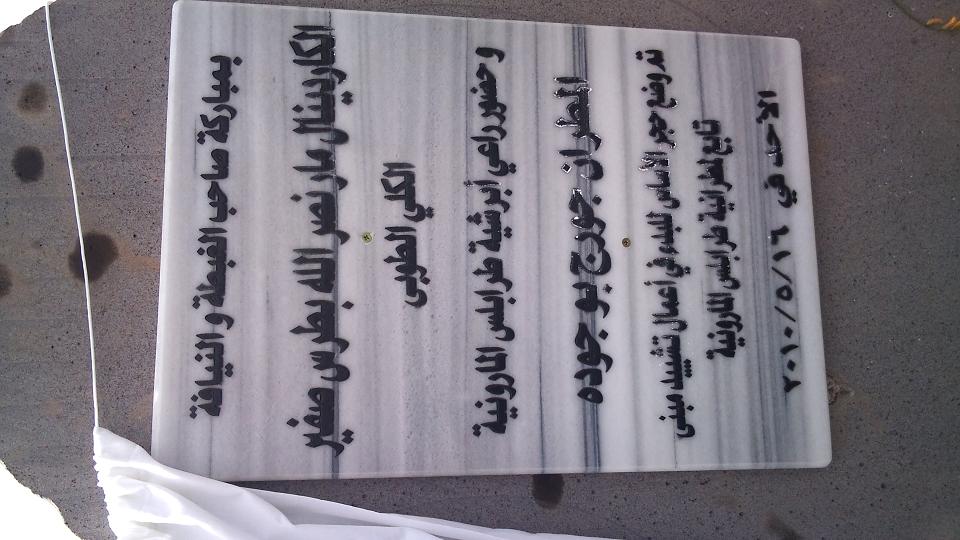 بمباركة صاحب الغبطة و النيافة
الكاردينال مار نصر الله بطرس صفير
الكلي الطوبى
و حضور راعي أبرشية طرابلس المارونية
المطران جورج بو جوده
تم وضع حجر الأساس للبدء في أعمال تشييد مبنى
تابع لمطرانية طرابلس المارونية
الاحد في ١٦/٥/٢٠١٠